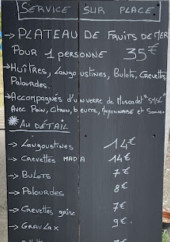 SERVICE SUR PLACE
→ PLATEAU DE FRUITS DE MER
POUR 1 PERSONNE 35€
→ HUÎTRES, Langoustines, Bulots, Crevettes
Palourdes.
→ Accompagnés d'un verre de Muscadet
Avec Pain, Citron, beurre, Mayonnaise et
AU DÉTAIL
→ Langoustines 14€
→ CREVETTES MADA 14€
→ BULOTS 7€
→ Palourdes 8€
→ Crevettes grise 7€
→ GRAVLAX 9€